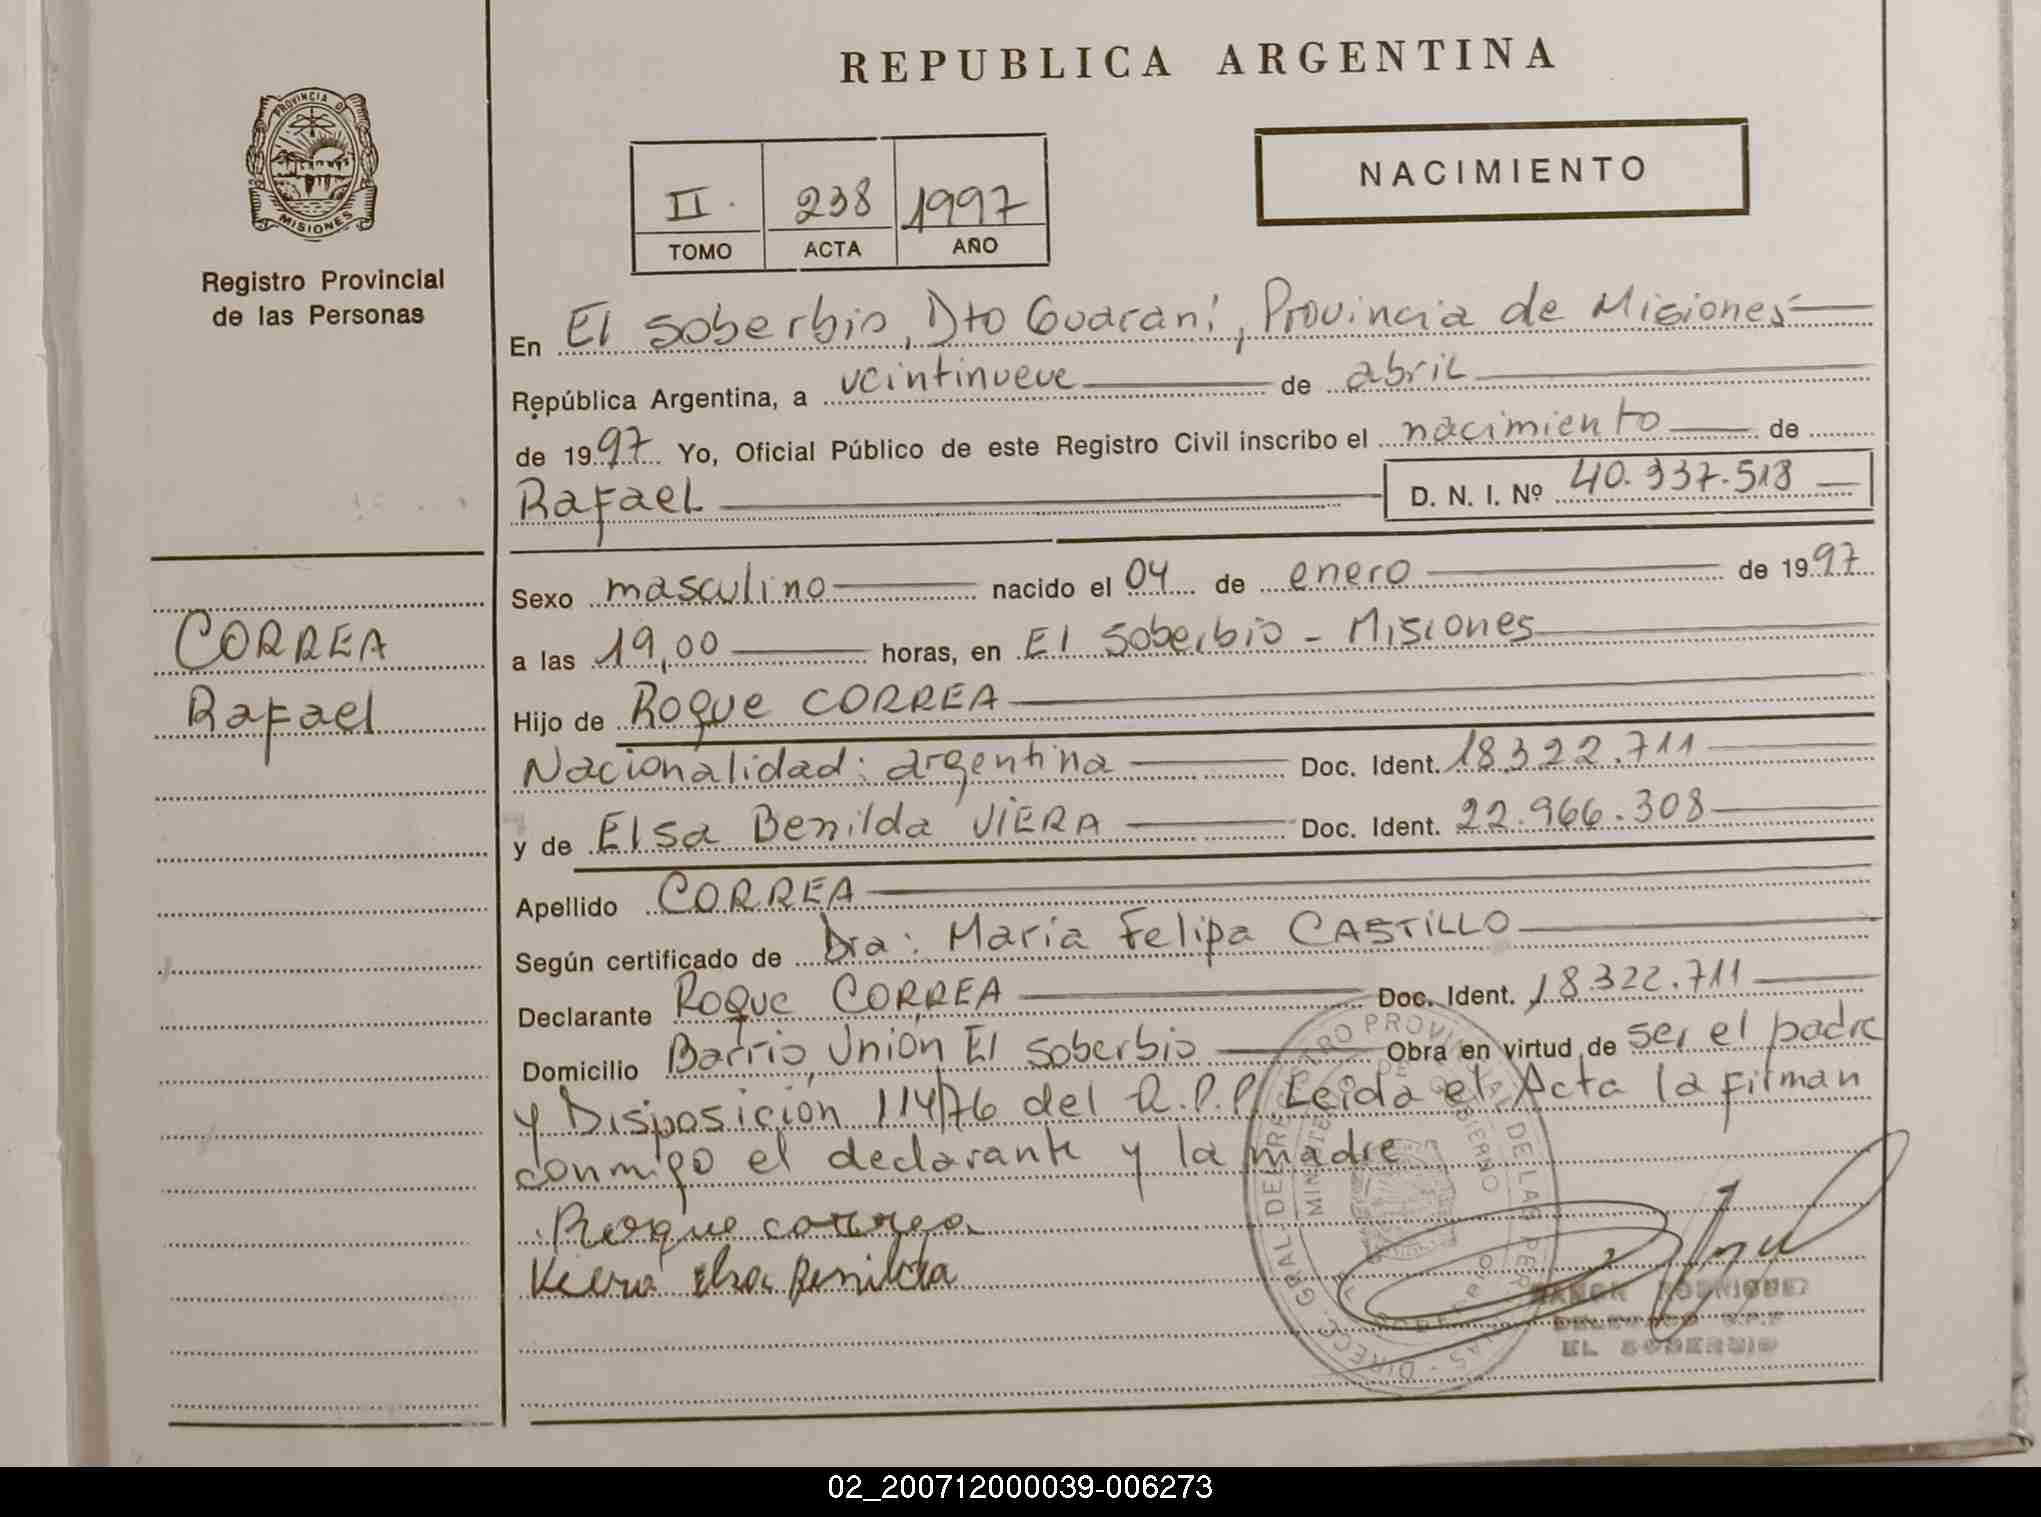 REPUBLICA ARGENTINA
PROVINCIA D
MISIONES
Registro Provincial
de las Personas
II. 238 1997
TOMO ACTA AÑO
NACIMIENTO
En El Soberbio, Dto Guaraní, Provincia de Misiones
República Argentina, a veintinueve de abril
de 1997 Yo, Oficial Público de este Registro Civil inscribo el nacimiento de
Rafael D. N. I. Nº 40.337.518
CORREA
Rafael
Sexo masculino nacido el 04 de enero de 1997
a las 19,00 horas, en El Soberbio - Misiones
Hijo de Roque CORREA
Nacionalidad: argentina Doc. Ident. 18.322.711
y de Elsa Benilda VIERA Doc. Ident. 22.966.308
Apellido CORREA
Según certificado de Dra: Maria Felipa CASTILLO
Declarante Roque CORREA Doc. Ident. 18.322.711
Domicilio Barrio Unión El Soberbio Obra en virtud de ser el padre
y Disposición 114/76 del R.P.P. Leida el Acta la firman
conmigo el declarante y la madre
Roque correa
Viera elsa Benilda
DIREC. GRAL. DE REGISTRO PROVINCIAL DE LAS PERSONAS
RAMON RODRIGUEZ
DELEGADO R.P.P
EL SOBERBIO
02_200712000039-006273